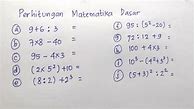 Perhitungan Matematika Dasar
ⓐ 9+6 : 3 =
ⓑ 7x8 - 40 =
ⓒ 95 - 4x3 =
ⓓ (2x5²)+10 =
ⓔ (8:2) +2³ =
ⓕ 95 : (5²-20) =
ⓖ 72 : 8 + 10² =
ⓗ 100 + 4x3 =
ⓘ : (2³+2) =
ⓙ (5+3)² : 2² =